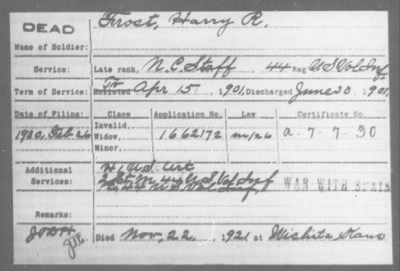 DEAD
Frost, Harry R.
Name of Soldier:
Service: Late rank, N.C. Staff 44 Reg U S Vol Inf
Term of Service: Enlisted Tr Apr 15, 1901, Discharged June 30, 1901
Date of Filing: Class Application No. Law Certificate No.
1920, Feb 26 Invalid,
Widow, 1662172 m/26 a-7-7-30
Minor,
Additional Services: H, 1 U.S. Art
44 U S Vol Inf WAR WITH SPAIN
Remarks:
Died Nov. 22, 1921 at Wichita, Kans